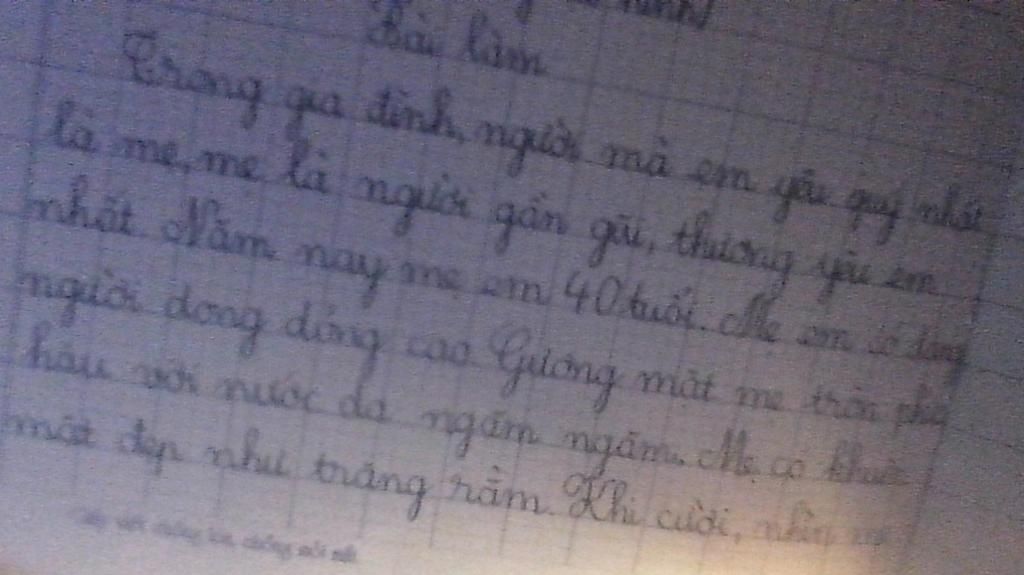 Bài làm
Trong gia đình, người mà em yêu quý nhất
là mẹ, mẹ là người gần gũi, thương yêu em
nhất. Năm nay mẹ em 40 tuổi. Mẹ em có dáng
người dong dỏng cao. Gương mặt mẹ tròn phúc
hậu với nước da ngăm ngăm. Mẹ có khuôn
mặt đẹp như trăng rằm. Khi cười, nhìn mẹ